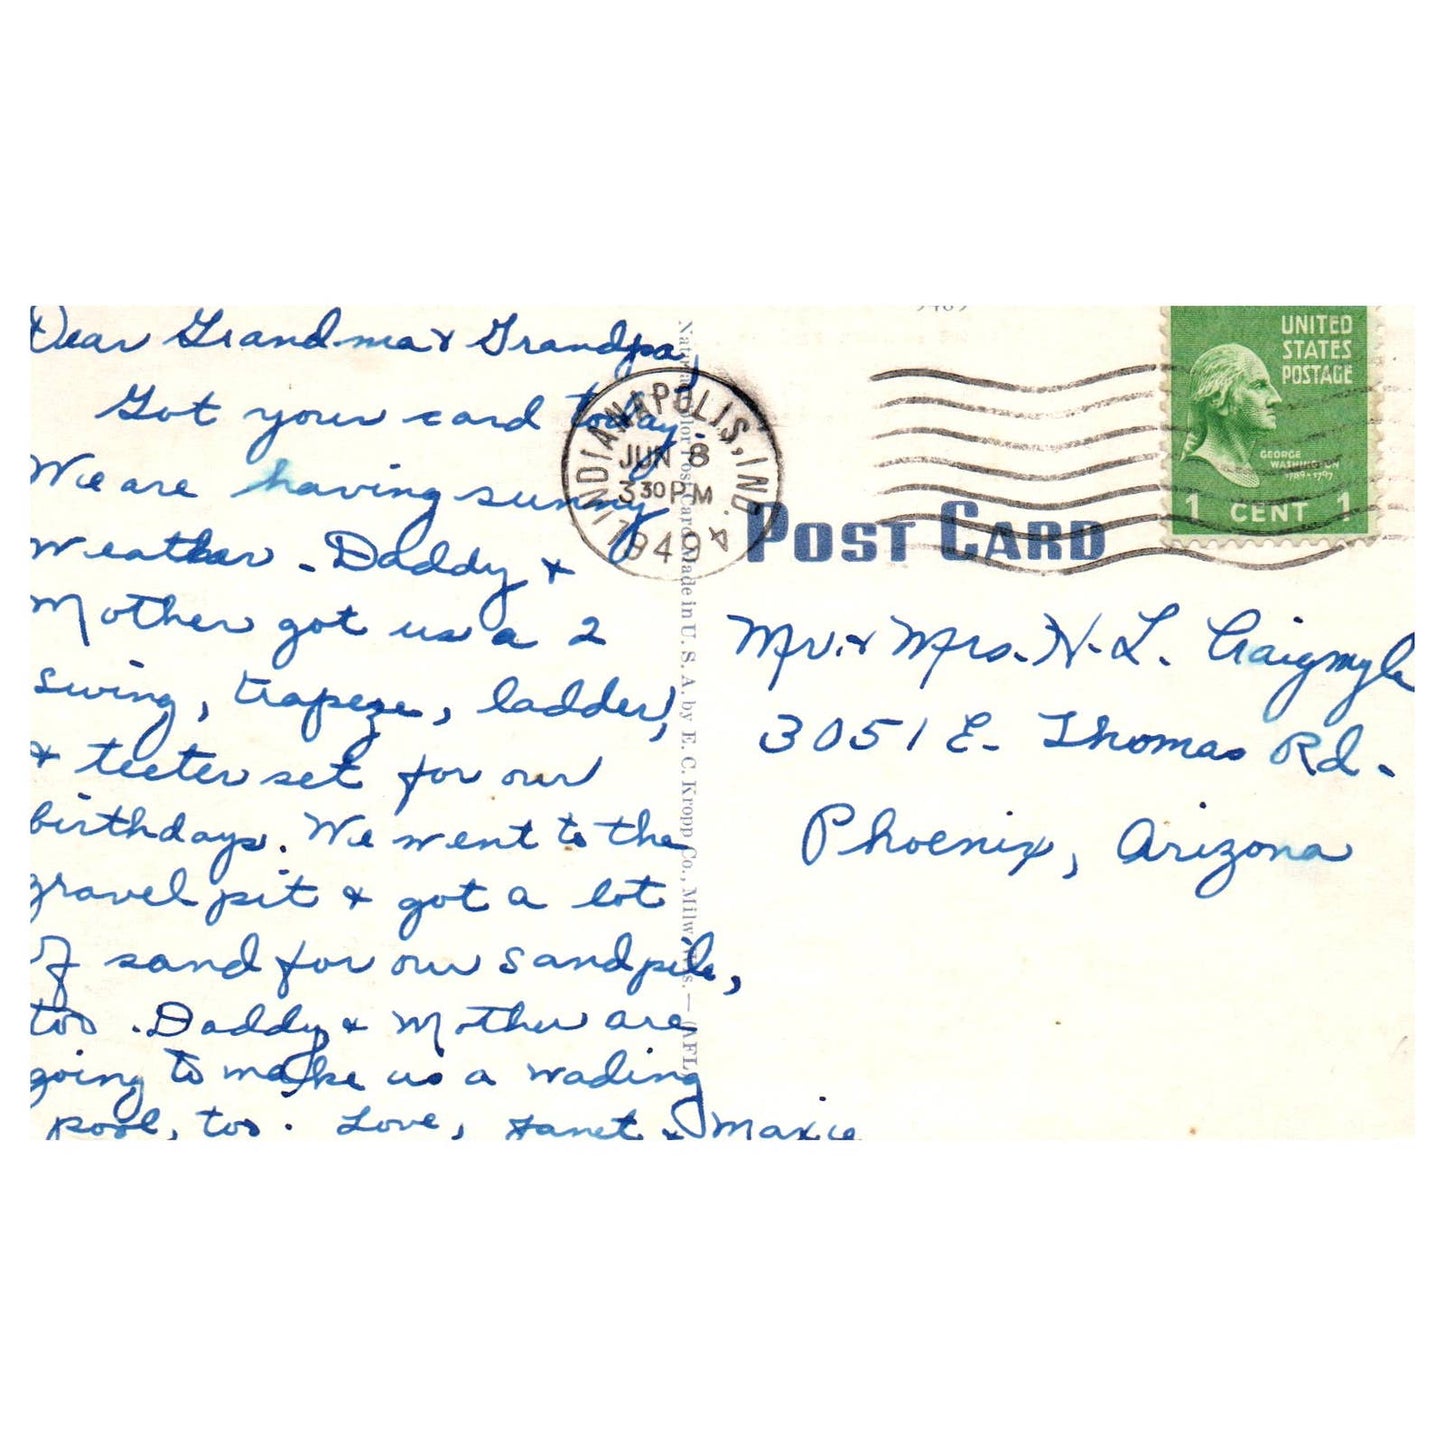 Dear Grandma & Grandpa,
Got your card today.
We are having sunny
weather. Daddy &
Mother got us a 2
swing, trapeze, ladder,
& teeter set for our
birthdays. We went to the
gravel pit & got a lot
of sand for our sandpile,
too. Daddy & Mother are
going to make us a wading
pool, too. Love, Janet & Maxie
INDIANAPOLIS, IND.
JUN 8
3 30 PM
1949
UNITED
STATES
POSTAGE
GEORGE
WASHINGTON
1789-1797
1 CENT 1
POST CARD
Mr. & Mrs. H. L. Craigmyle
3051 E. Thomas Rd.
Phoenix, Arizona
Made in U. S. A. by E. C. Kropp Co., Milw